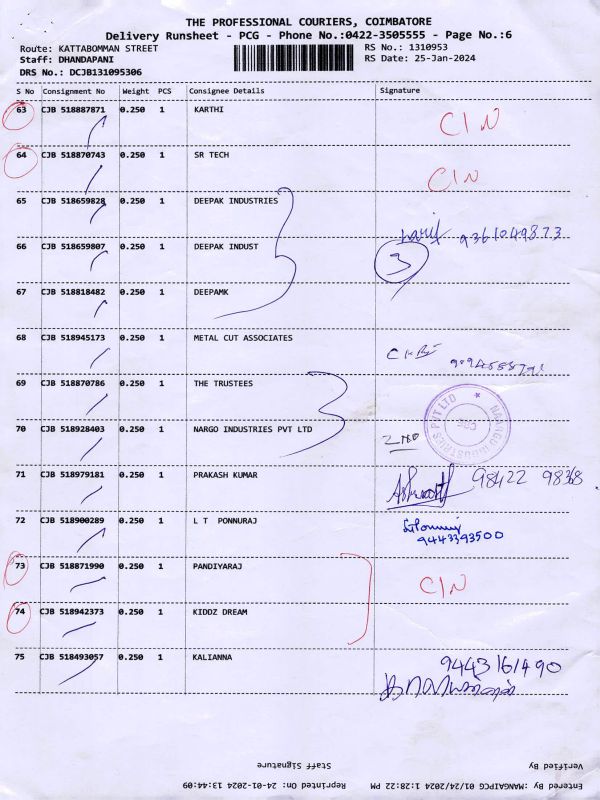 THE PROFESSIONAL COURIERS, COIMBATORE
Delivery Runsheet - PCG - Phone No.:0422-3505555 - Page No.:6
Route: KATTABOMMAN STREET
RS No.: 1310953
Staff: DHANDAPANI
RS Date: 25-Jan-2024
DRS No.: DCJB131095306
S No Consignment No Weight PCS Consignee Details Signature
63 CJB 518887871 0.250 1 KARTHI CIN
64 CJB 518870743 0.250 1 SR TECH CIN
65 CJB 518659828 0.250 1 DEEPAK INDUSTRIES
66 CJB 518659807 0.250 1 DEEPAK INDUST 9361049873
3
67 CJB 518818482 0.250 1 DEEPAMK
68 CJB 518945173 0.250 1 METAL CUT ASSOCIATES
69 CJB 518870786 0.250 1 THE TRUSTEES
70 CJB 518928403 0.250 1 NARGO INDUSTRIES PVT LTD
71 CJB 518979181 0.250 1 PRAKASH KUMAR 98422 98368
72 CJB 518900289 0.250 1 L T PONNURAJ
9443393500
73 CJB 518871990 0.250 1 PANDIYARAJ CIN
74 CJB 518942373 0.250 1 KIDDZ DREAM
75 CJB 518493057 0.250 1 KALIANNA 9443161490
Staff Signature Verified By
Reprinted On: 24-01-2024 13:44:09 Entered By :MANGAIPCG 01/24/2024 1:28:22 PM